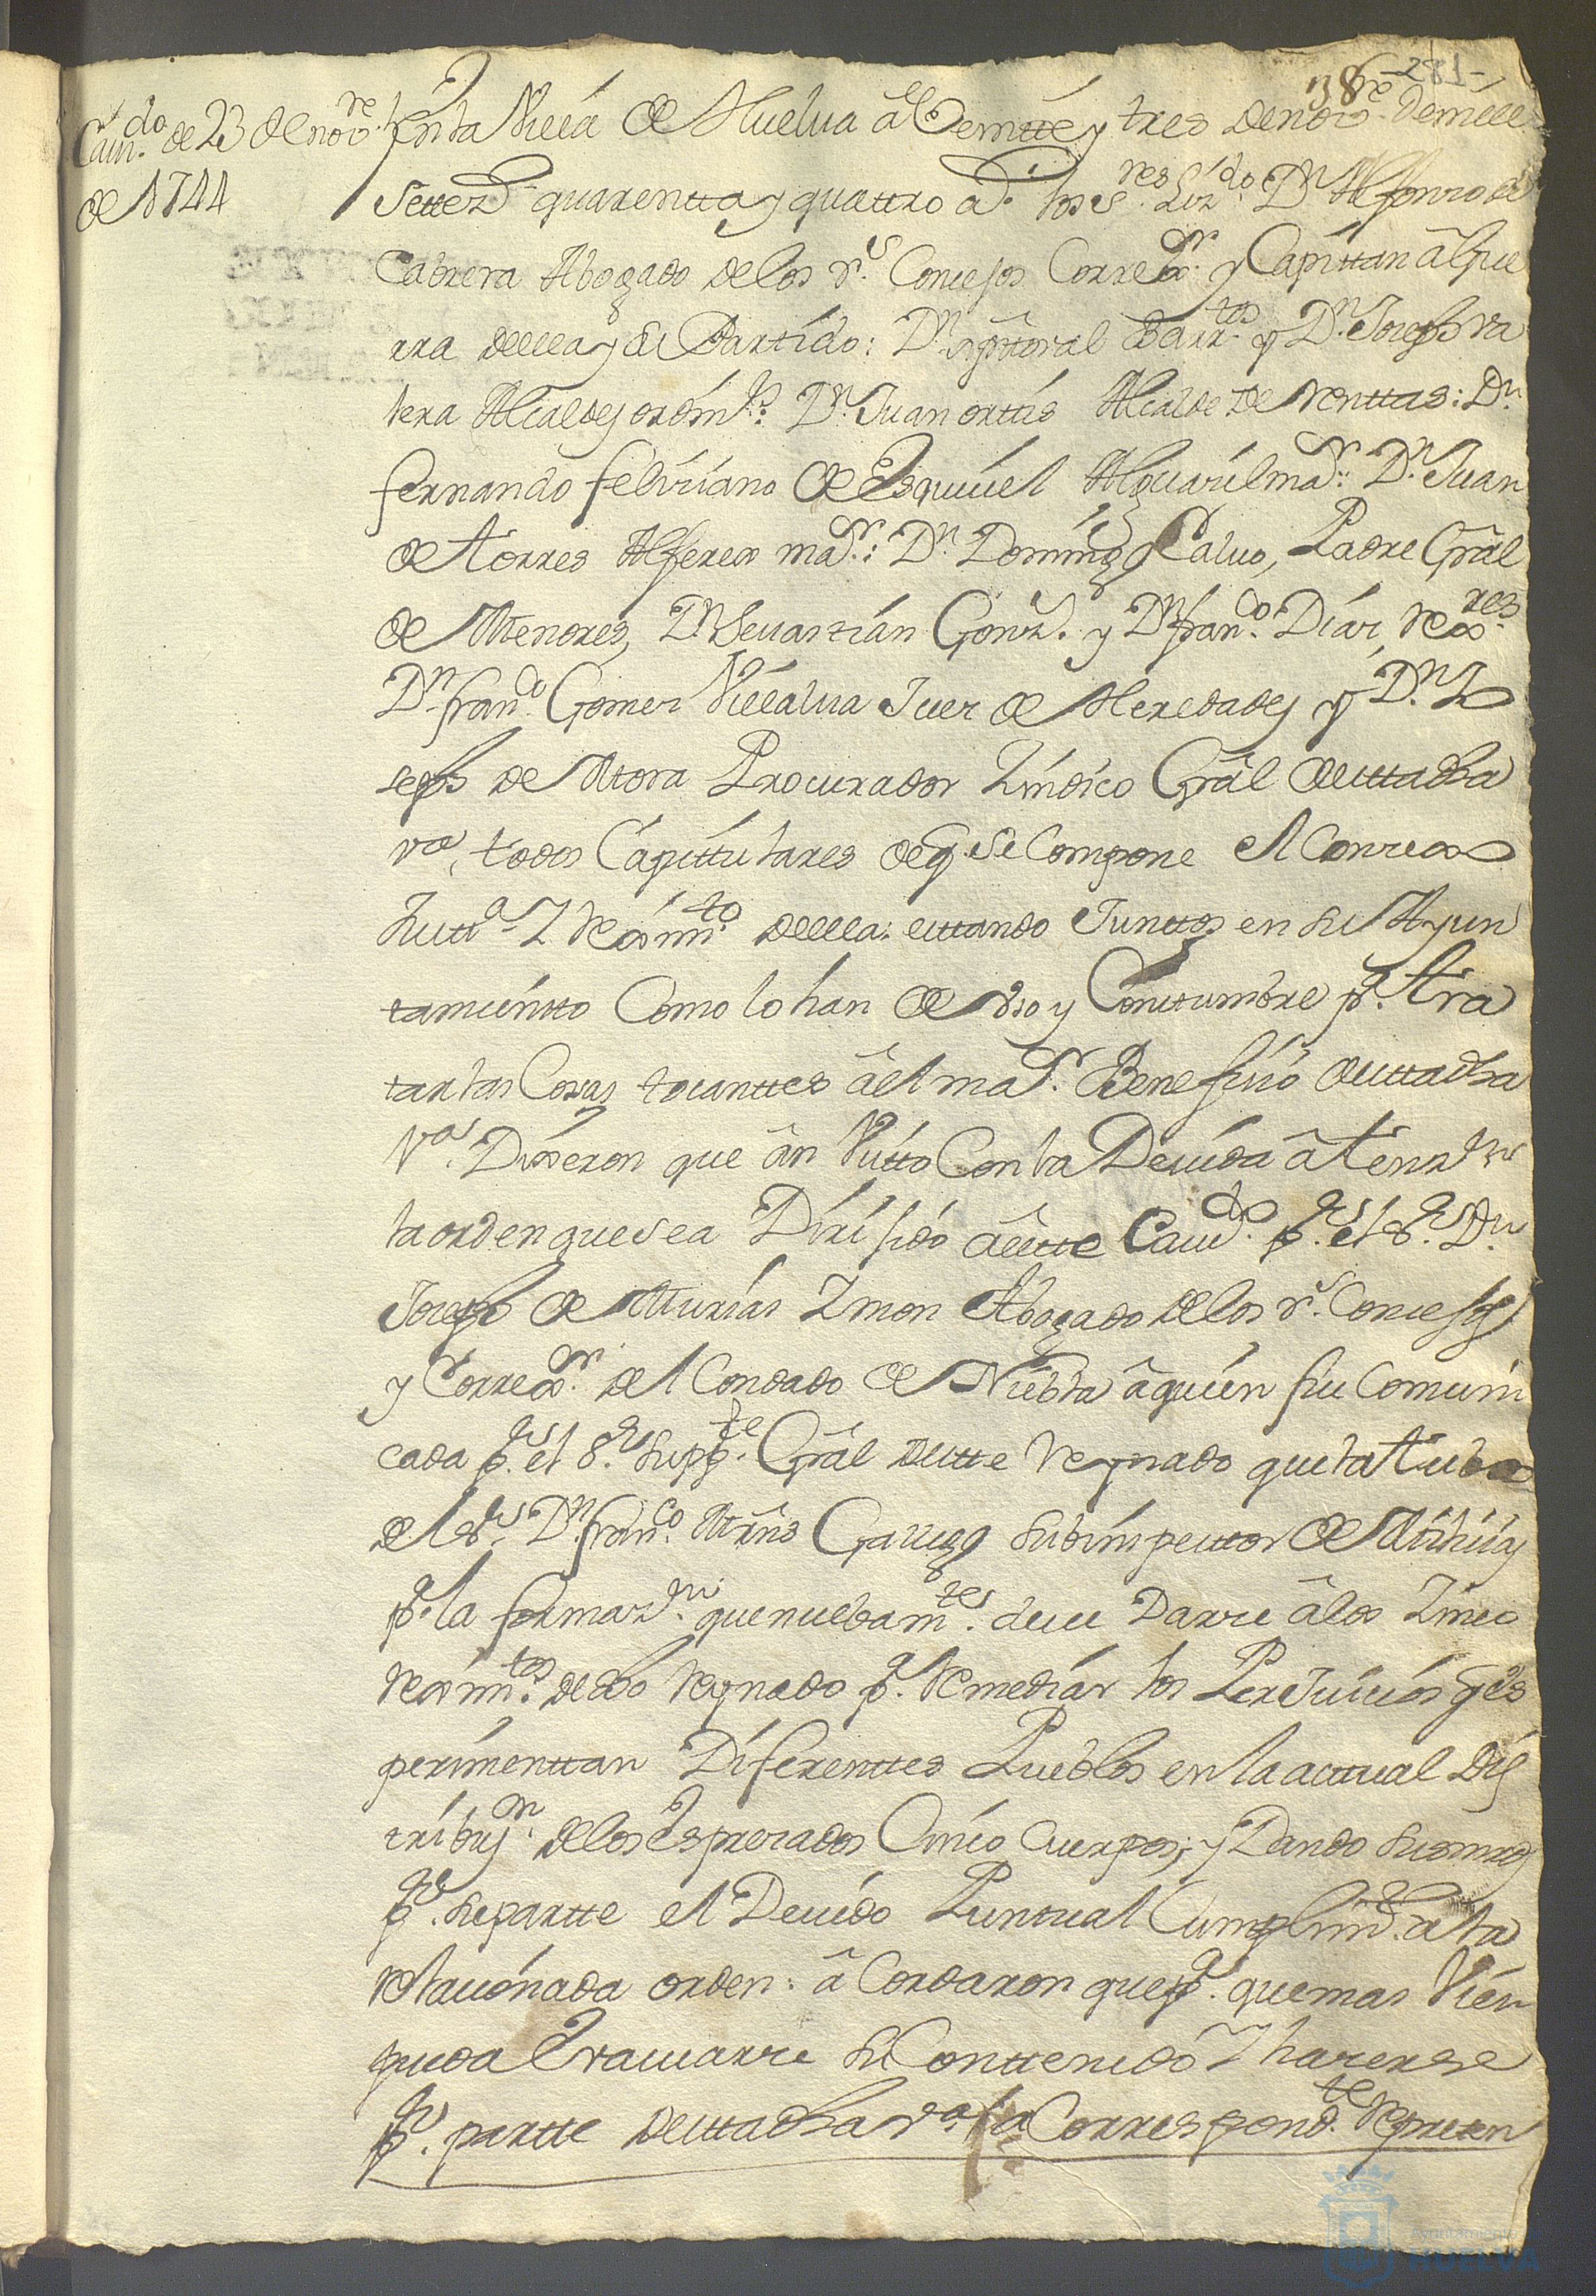 38 -281-
Cavdo. de 23 de novre.
de 1744
En la Villa de Huelva â Veintte y tres de novre. de mill
settezs. quarentta y quattro as. los ses. Lizdo. Dn. Alfonso de
Cabrera Abogado de los rs. Consejos Correxr. y Capittan â Gue
rra della y su Partido: Dn. Xpttoval Barrtos. y Dn. Joseph va
lera Alcaldes ordinos. Dn. Juan ortis Alcalde de Renttas: Dn.
fernando feliziano de Esquivel Alguasil mar. Dn. Juan
de torres Alferes mar.: Dn. Domingo Calvo, Padre Grâl
de Menores, Dn. Sevastian Gonz. y Dn. Frando. Diaz, Rexres.
Dn. frando. Gomez Villalva Juez de Heredades y Dn. Jo
seph de Mora Procurador Sindico Grâl desttadha
va. todos Capittulares de q. se Compone el Consexo
Justta. y Reximto. della: esttando Junttos en su Ayun
tamientto Como lo han de uso y Costtumbre pa. tra
tar las Cosas tocanttes âel mar. Benefisio desttadha
Va. Dixeron que ân Visto Con la Devida âtenzn.
la orden que sea Dirijido âestte Cavdo. pr. el sr. Dn.
Joseph de Murias Ymon Abogado de los rs. Consejos
y Correxr. del Condado de Niebla âquien fue Comuni
cada pr. el sr. Suppte. Grâl destte Reynado que la tubo
del sr. Dn. franco. Mrns Gallego subinspecttor de Milisias
pa. la formazn. que nuebamtes. deve Darse âlos Zinco
Reximtos. de dho Reynado pa. Remediar los Perjuicios q es
perimenttan Diferenttes Pueblos en la acttual Dis
tribuzn. de los Espresados Cinco Cuerpos; y Dando sus mrds
pr. su partte el Devido Punttual Cumplimto. a la
relacionada orden: â Cordaron que pa. que mas Vien
pueda Evacuarse su Conttenido y haserse
pr. partte desttadha va. la Correspondte. Represen
Ayuntamiento
HUELVA